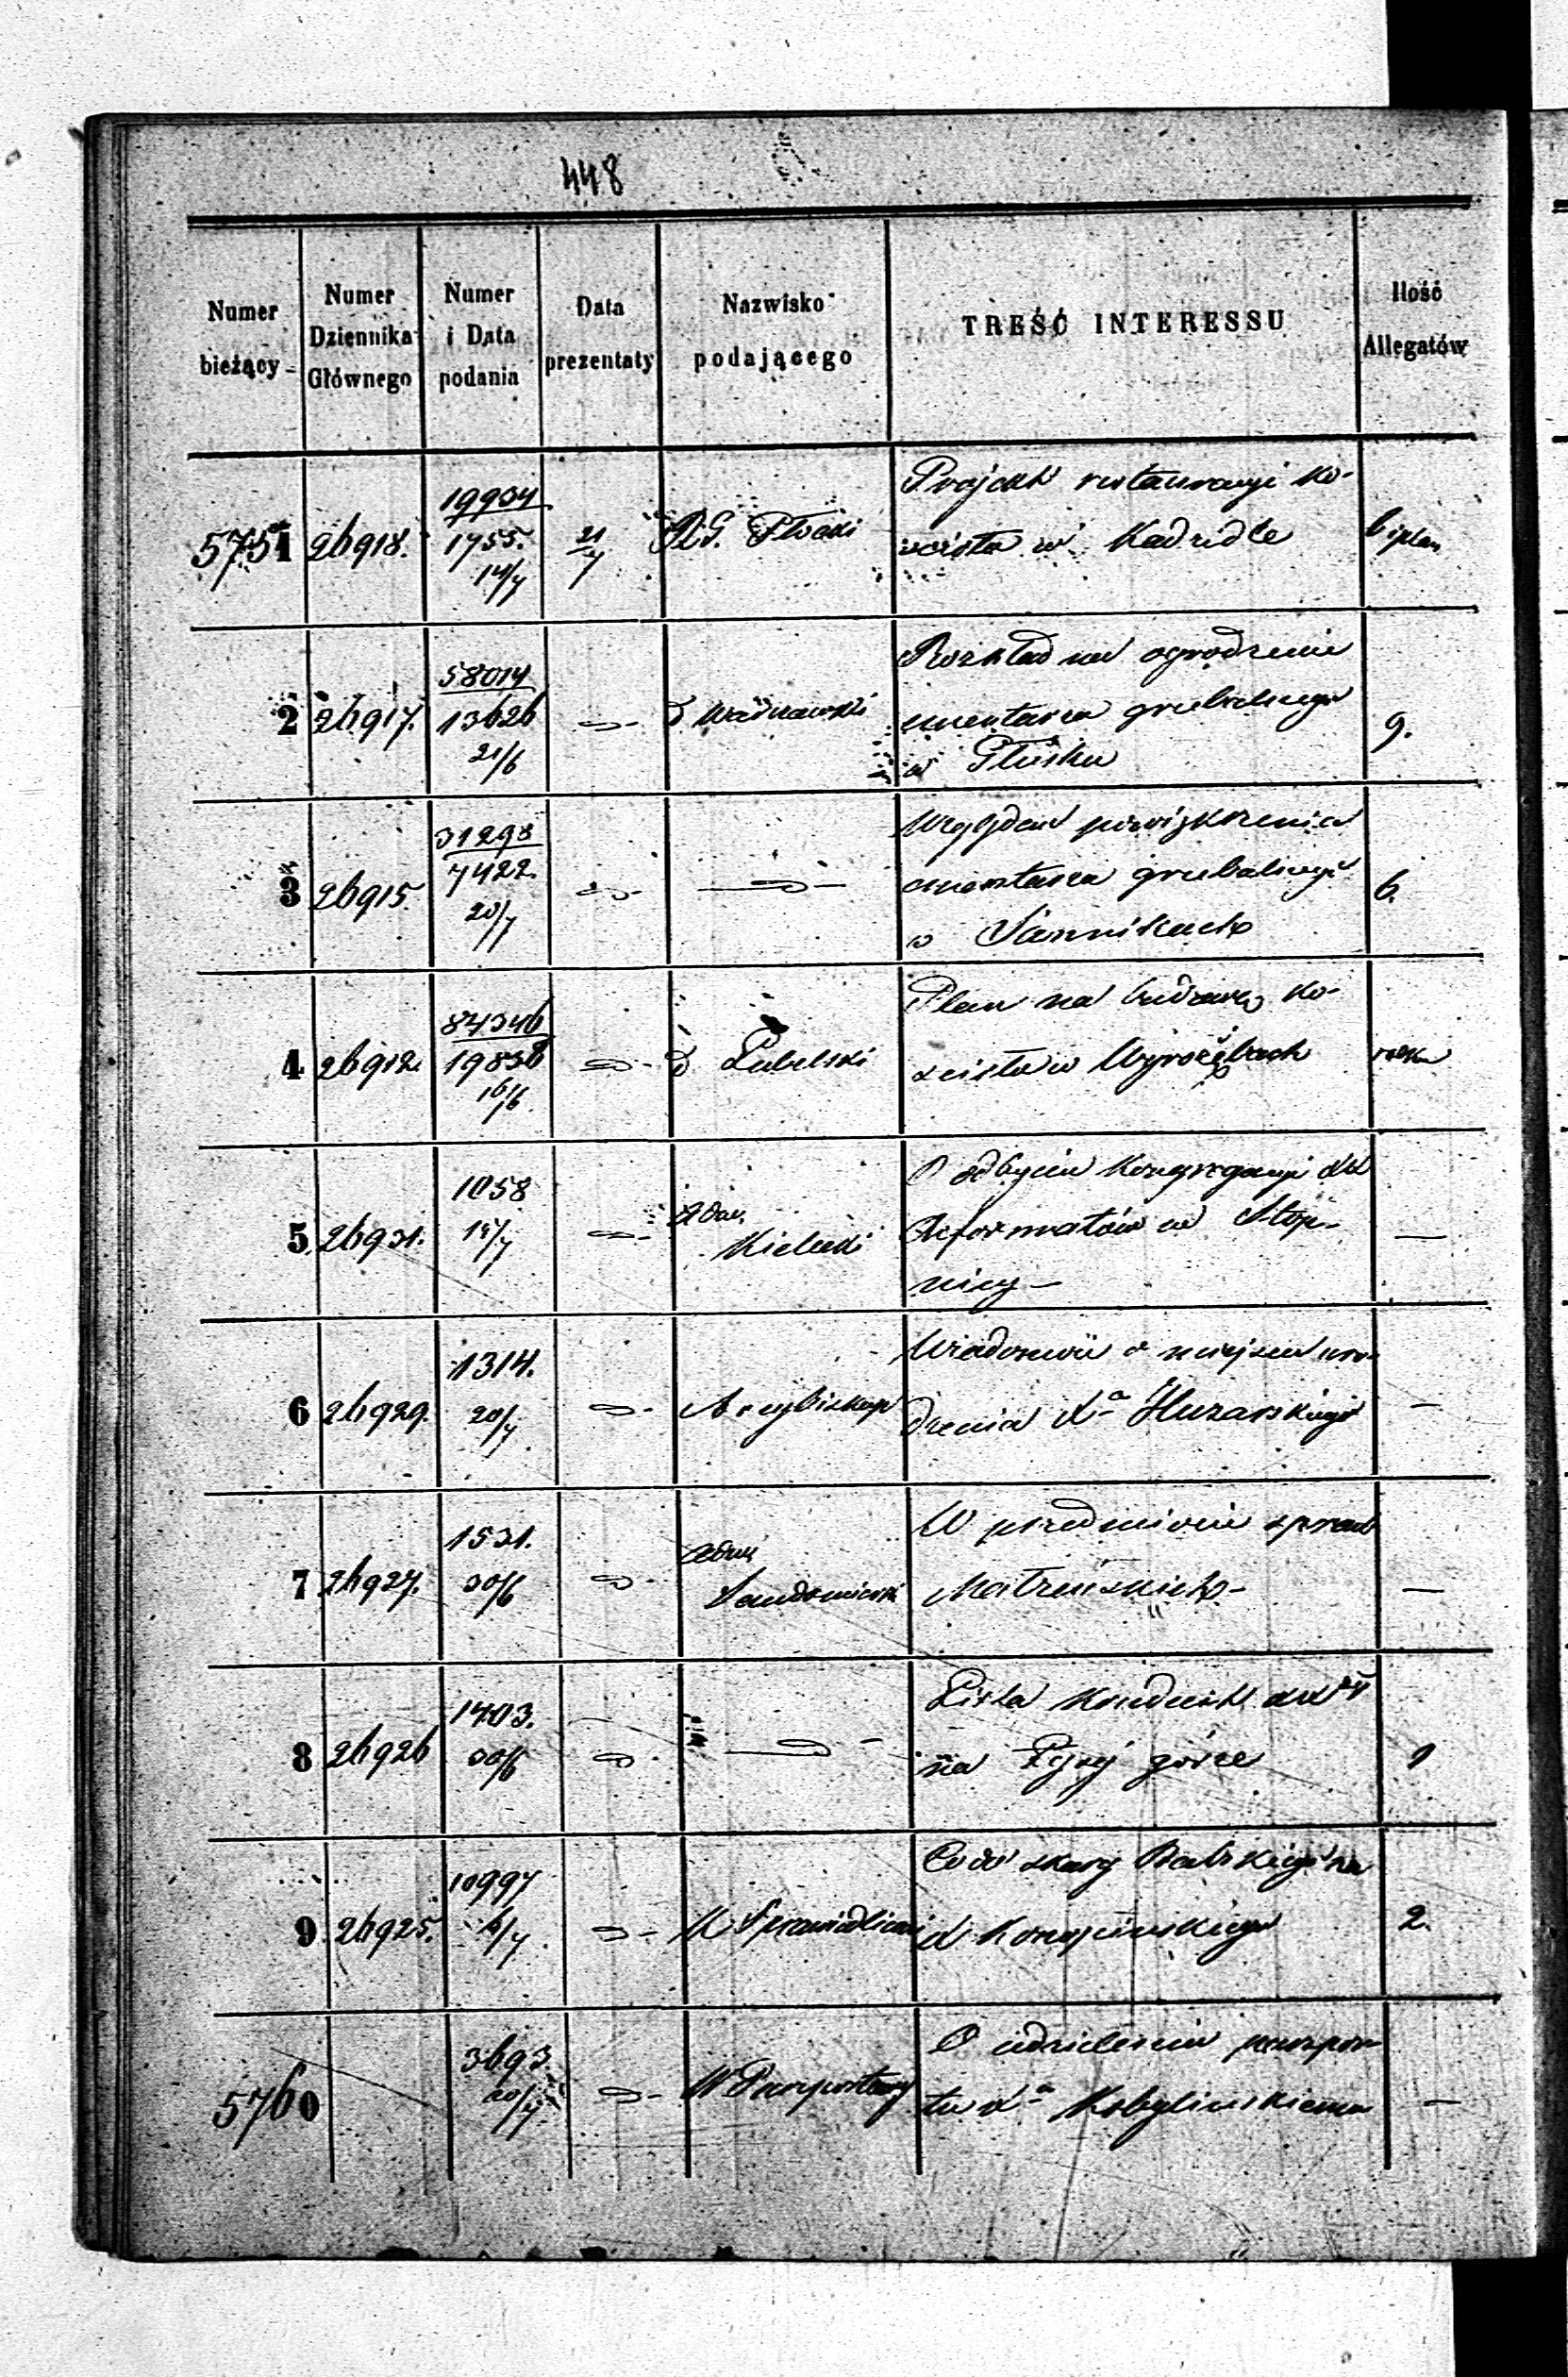 448
Numer bieżący
Numer Dziennika Głównego
Numer i Data podania
Data prezentaty
Nazwisko podającego
TREŚĆ INTERESSU
Ilość Allegatów
5751
26918.
19934
1755.
14/7
21/7
R.G. Płocki
Projekt restauracyi ko-
ścioła w Kadzidle
6 i plan
2
26917.
58014
13626
21/6
Rozkład na ogrodzenie
cmentarza grzebalnego
w Płusku
9.
3
26915.
31298
7422.
20/7
Względem powiększenia
cmentarza grzebalnego
w Sannikach
6.
4
26912.
84346
19838
16/6
Lubelski
Plan na budowę ko-
ścioła w Wyrozębach
5
26931.
1058
Adm.
Kielecki
O odbyciu Kongregacyi XX
Reformatów w Stop-
nicy —
—
6
26929.
1314.
20/7
Arcybiskup
Wiadomość o miejscu uro-
dzenia Xa Huzarskiego
—
7
26927.
1531.
30/6
Adm.
Sandomierski
W przedmiocie spraw
Małżeńskich —
—
8
26926
1403.
30/6
Lista XX
na Łysej górze
1
9
26925.
10997
6/7
K Sprawiedliwości
Co do skargi na
X
2.
5760
3693.
20/7
W Paszportowy
O udzieleniu paszpor-
tu Xa Kobylinskiemu
—